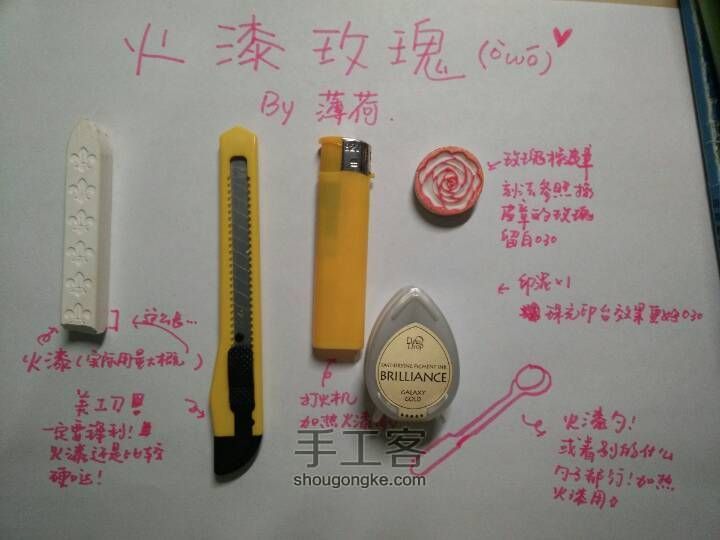 火漆玫瑰(òwó)♥
By 薄荷.
玫瑰橡皮章
刻法参照橡
皮章的玫瑰
留白030
印泥×1
珠光印台效果更好030
这么长...
火漆(实际用量大概)
美工刀!
一定要锋利!
火漆还是比较
硬哒!
打火机
加热火漆
DEW
DROP
FAST-DRYING PIGMENT INK
BRILLIANCE
GALAXY
GOLD
火漆勺!
或者别的什么
勺子都行!加热
火漆用
手工客
shougongke.com